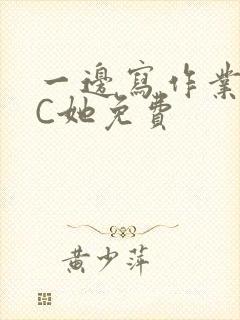 一邊寫作業
C她免費
黃少萍